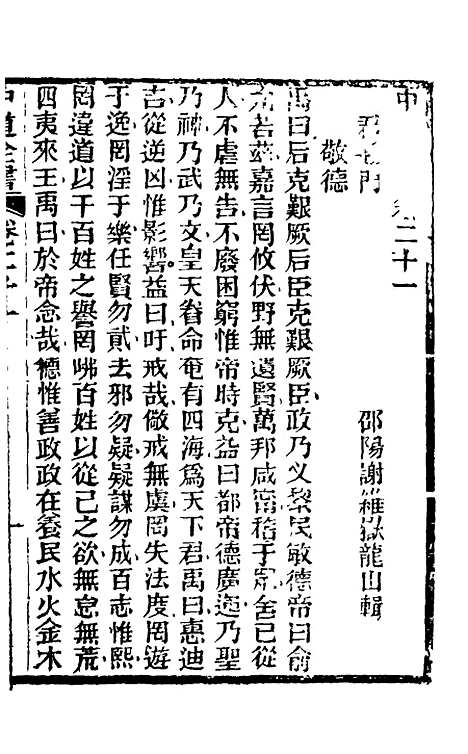 中
卷二十一
邵陽謝維嶽龍山輯
敬德
禹曰后克艱厥后臣克艱厥臣政乃乂黎民敏德帝曰俞
允若茲嘉言罔攸伏野無遺賢萬邦咸寧稽于衆舍已從
人不虐無告不廢困窮惟帝時克益曰都帝德廣運乃聖
乃神乃武乃文皇天眷命奄有四海爲天下君禹曰惠迪
吉從逆凶惟影響益曰吁戒哉儆戒無虞罔失法度罔遊
于逸罔淫于樂任賢勿貳去邪勿疑疑謀勿成百志惟熙
罔違道以干百姓之譽罔咈百姓以從己之欲無怠無荒
四夷來王禹曰於帝念哉德惟善政政在養民水火金木
中道全書
卷二十一
一